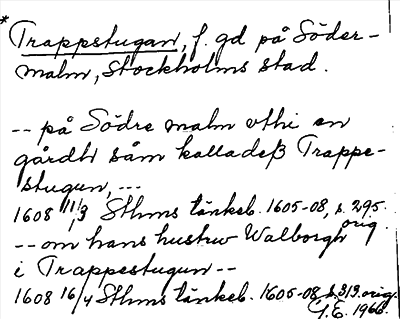 * Trappstugan, f. gd på Söder-
malm, Stockholms stad.
-- på Södre malm vthi en
gårdh såm kalladeß Trappe-
stugun, ---
1608 11/3 Sthms tänkeb. 1605-08, s. 295.
orig.
-- om hans hustrw Walborgh
i Trappestugun --
1608 16/4 Sthms tänkeb. 1605-08 s. 313. orig.
G.E. 1966.